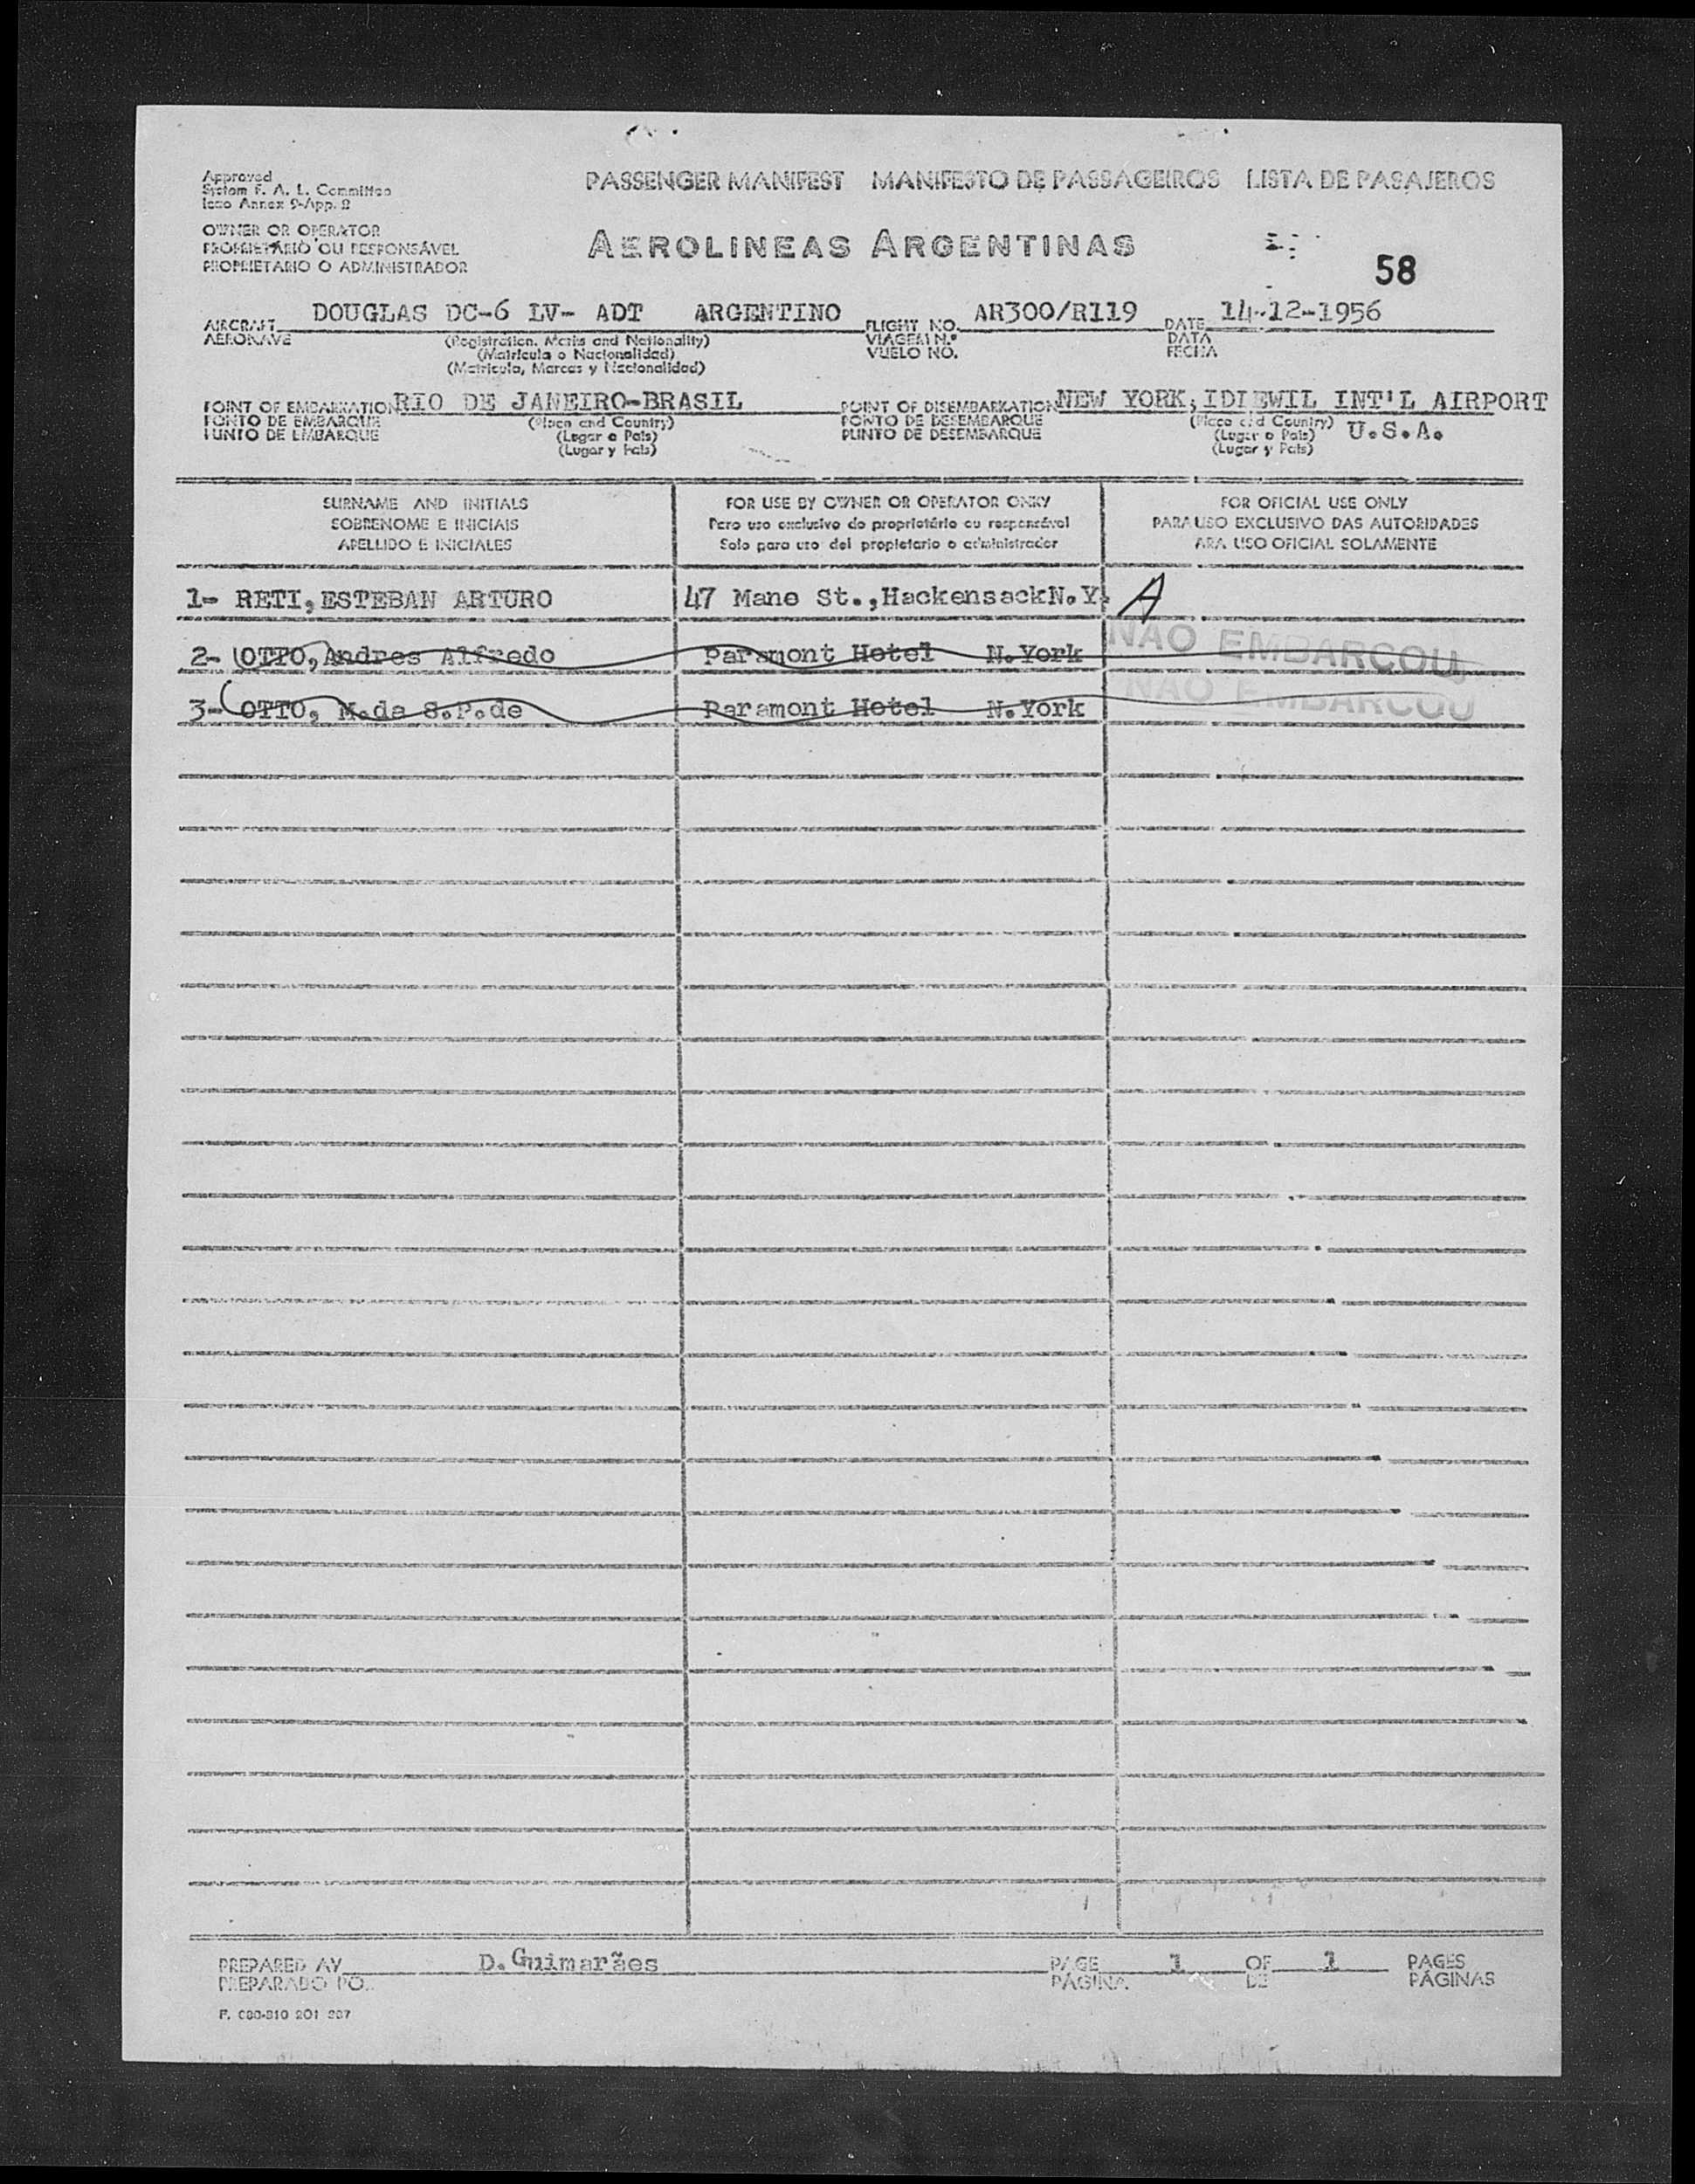 Approved
System F. A. L. Committee
Icao Annex 9-App. 2
PASSENGER MANIFEST MANIFESTO DE PASSAGEIROS LISTA DE PASAJEROS
OWNER OR OPERATOR
PROPRIETÁRIO OU RESPONSÁVEL
PROPRIETARIO O ADMINISTRADOR
AEROLINEAS ARGENTINAS
58
AIRCRAFT DOUGLAS DC-6 LV- ADT ARGENTINO FLIGHT NO. AR300/R119 DATE 14-12-1956
AERONAVE (Registration, Marks and Nationality) VIAGEM N.º DATA
(Matrícula o Nacionalidad) VUELO NO. FECHA
(Matrícula, Marcas y Nacionalidad)
POINT OF EMBARKATION RIO DE JANEIRO-BRASIL POINT OF DISEMBARKATION NEW YORK, IDLEWIL INT'L AIRPORT
PONTO DE EMBARQUE (Place and Country) PONTO DE DESEMBARQUE (Place and Country) U.S.A.
PUNTO DE EMBARQUE (Lugar o País) PUNTO DE DESEMBARQUE (Lugar o País)
(Lugar y País) (Lugar y País)
SURNAME AND INITIALS FOR USE BY OWNER OR OPERATOR ONKY FOR OFICIAL USE ONLY
SOBRENOME E INICIAIS Pero uso exclusivo do proprietário ou responsável PARA USO EXCLUSIVO DAS AUTORIDADES
APELLIDO E INICIALES Solo para uso del propietario o administrador ARA USO OFICIAL SOLAMENTE
1- RETI, ESTEBAN ARTURO 47 Mane St.,HackensackN.Y. A
2- OTTO, Andres Alfredo Paramont Hotel N.York NAO EMBARCOU
3- OTTO, M.da S.P.de Paramont Hotel N.York NAO EMBARCOU
PREPARED AY D. Guimarães PAGE 1 OF 1 PAGES
PREPARADO PO. PÁGINA DE PÁGINAS